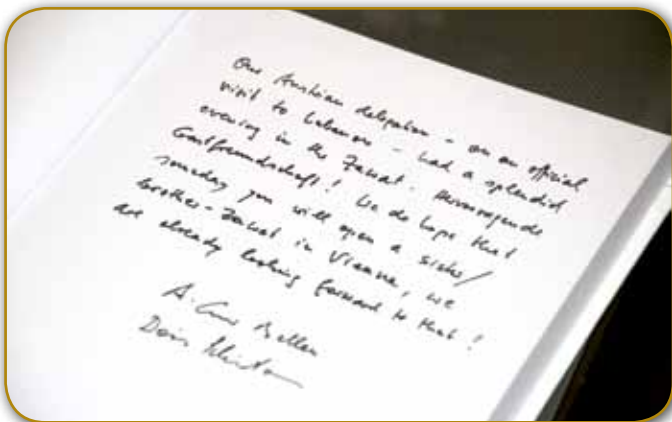 Our Austrian delegation - on an official
visit to Lebanon - had a splendid
evening in the Zawat. Hervorragende
Gastfreundschaft! We do hope that
someday you will open a sister/
brother-Zawat in Vienna, we
are already looking forward to that!
A. Van der Bellen
Doris